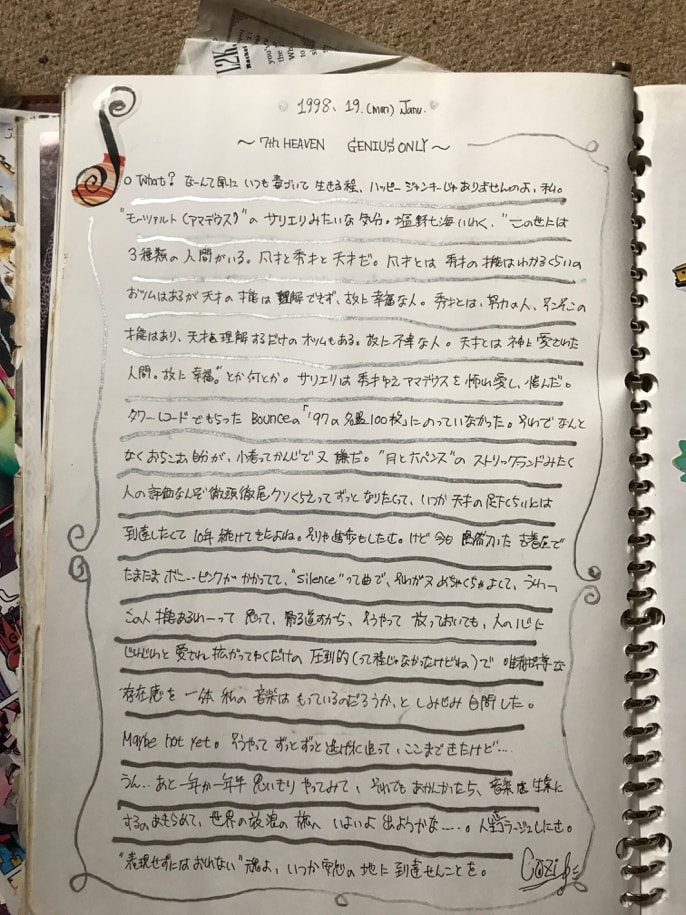 1998. 19. (mon) Janu.
～ 7th HEAVEN GENIUS ONLY ～
So What? なーんて風に いつも毒づいて 生きる程、ハッピー ジャンキーじゃ ありませんのよ、私。
"モーツァルト(アマデウス)"の サリエリみたいな 気分。塩野七海 いわく、"この世には
3種類の 人間がいる。凡才と秀才と天才だ。凡才とは 秀才の 才能はわかるくらいの
おツムはあるが 天才の 才能は 理解できず、故に 幸福な人。秀才とは、努力の人、そこそこの
才能はあり、天才を理解するだけの オツムもある。故に 不幸な人。天才とは 神に 愛された
人間。故に 幸福。"とか何とか。サリエリは 秀才ゆえ アマデウスを 怖れ愛し、憎んだ。
タワーレコードで もらった Bounceの「'97の 名盤100枚」にのっていなかった。それで なんと
なく おちこむ 自分が、小者ってかんじで 又 嫌だ。"月と六ペンス"の ストリックランドみたく
人の評価なんぞ 徹頭徹尾 クソくらえって ずっと なりたくって、いつか 天才の 足下くらいには
到達したくて 10年 続けてきたよね。そりゃ 進歩もしたさ。けど 今日 入った 古着屋で
たまたま ボニー・ピンクが かかってて、"Silence"って曲で、それが又 めちゃくちゃ よくて、うわーっ
この人 才能あるわーって 思って、帰る道すがら、そうやって 放っておいても、人の心に
じわじわと 愛され 拡がってゆくだけの 圧倒的(って程じゃなかったけどね)で 唯一無二な
存在感を 一体 私の 音楽は もっているのだろうか、と しみじみ 自問した。
Maybe not yet. そうやって ずっとずっと 逃げ水 追って、ここまできたけど…
うん… あと 一年か一年半 思いきり やってみて、それでも あかんかったら、音楽は 生業に
するの あきらめて、世界の 放浪の 旅へ いよいよ 出ようかな……。人生
"表現せずには おれない" 魂よ、いつか 安息の 地に 到達せんことを。